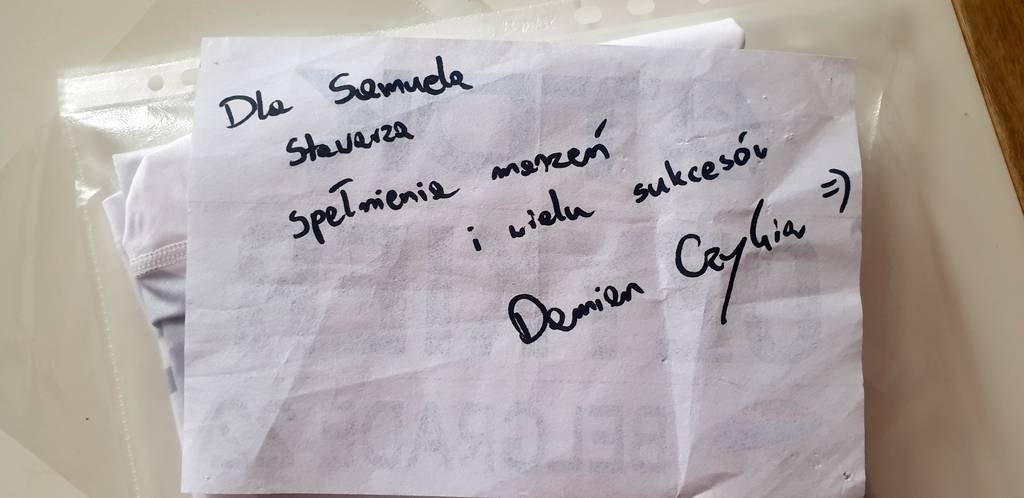 Dla Samuela
Stawarza
spełnienia marzeń
i wielu sukcesów
Damian Czykier =)
BELGRADE 22